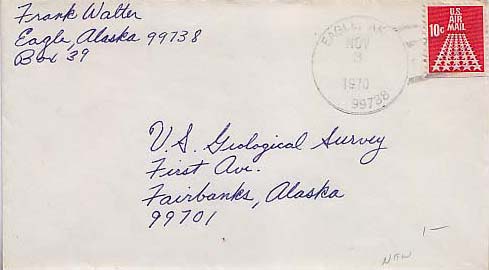 Frank Walter
Eagle, Alaska 99738
Box 39
EAGLE, AK.
NOV
3
1970
99738
U.S.
AIR
MAIL
10c
U.S. Geological Survey
First Ave.
Fairbanks, Alaska
99701
1-